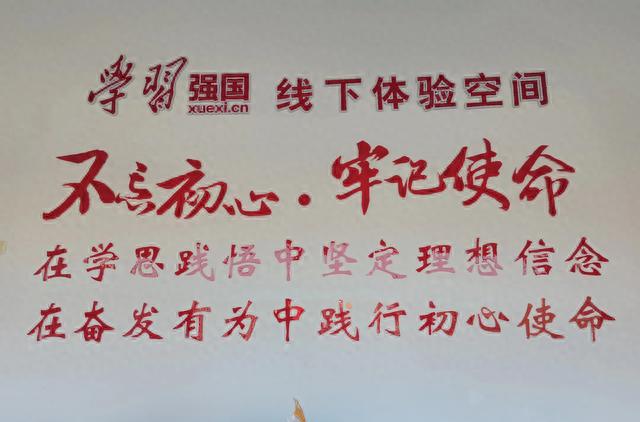 學習强国 xuexi.cn 线下体验空间
不忘初心·牢记使命
在学思践悟中坚定理想信念
在奋发有为中践行初心使命